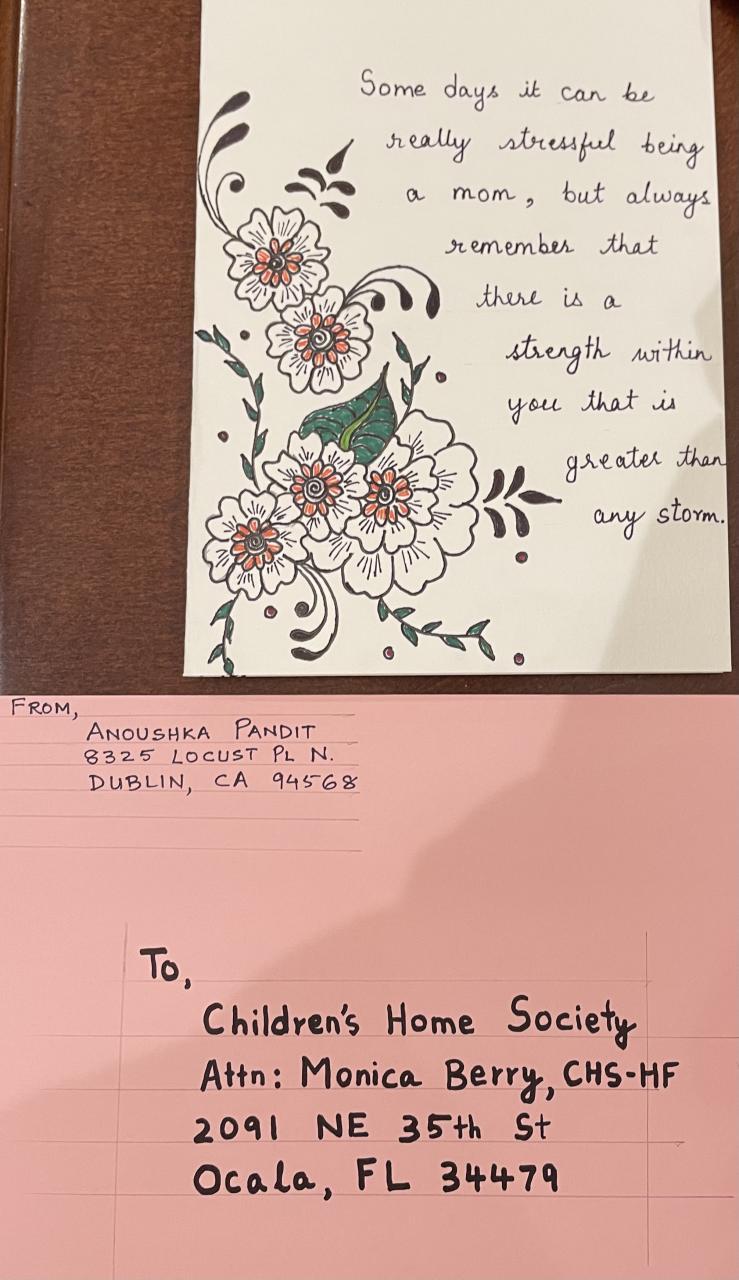 Some days it can be
really stressful being
a mom, but always
remember that
there is a
strength within
you that is
greater than
any storm.
FROM,
ANOUSHKA PANDIT
8325 LOCUST PL N.
DUBLIN, CA 94568
To,
Children's Home Society
Attn: Monica Berry, CHS-HF
2091 NE 35th St
Ocala, FL 34479